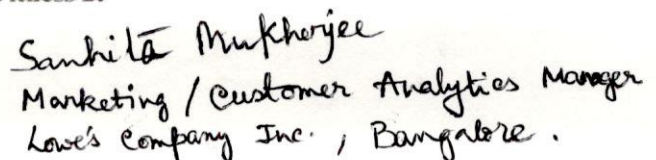 Sanhitā Mukherjee
Marketing / Customer Analytics Manager
Lowe's Company Inc. , Bangalore .